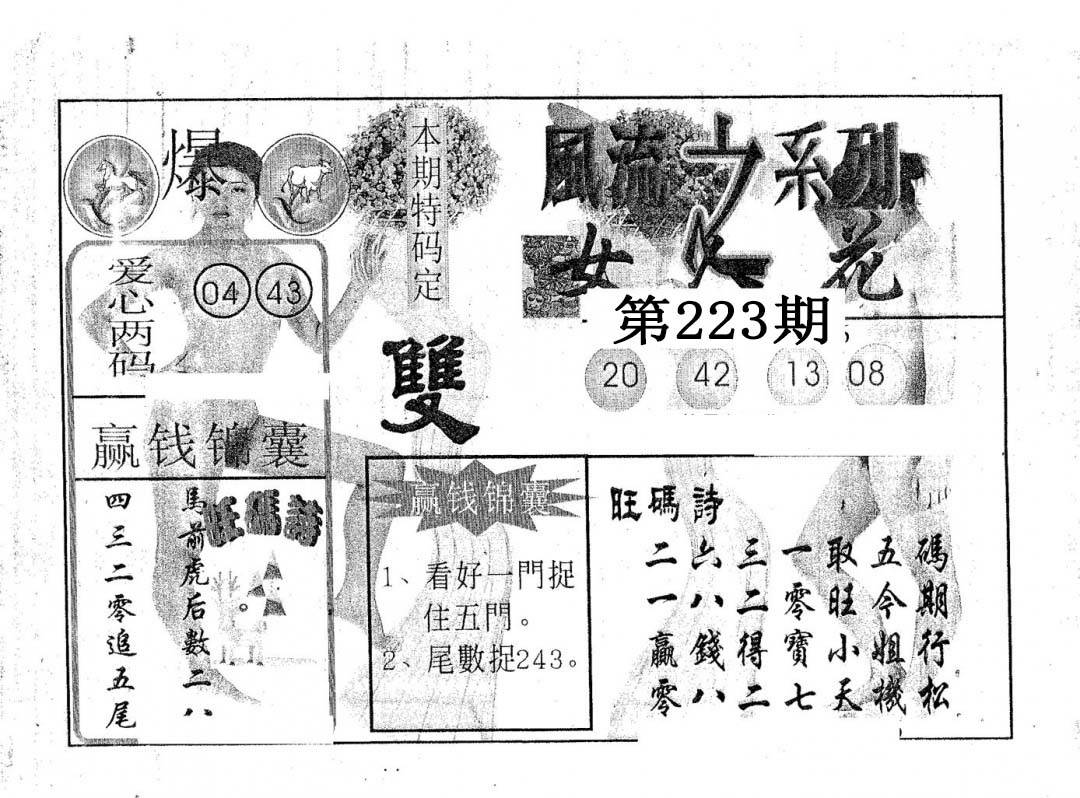 爆
爱心两码
04 43
赢钱锦囊
旺碼詩
馬前虎后數二八
四三二零追五尾
本期特码定
雙
風流之系列
女人花
第223期
20 42 13 08
赢钱锦囊
1、看好一門捉
住五門。
2、尾數捉243。
旺碼詩
碼期行松
五今姐機
取旺小天
一零寶七
三二得二
六八錢八
二一贏零